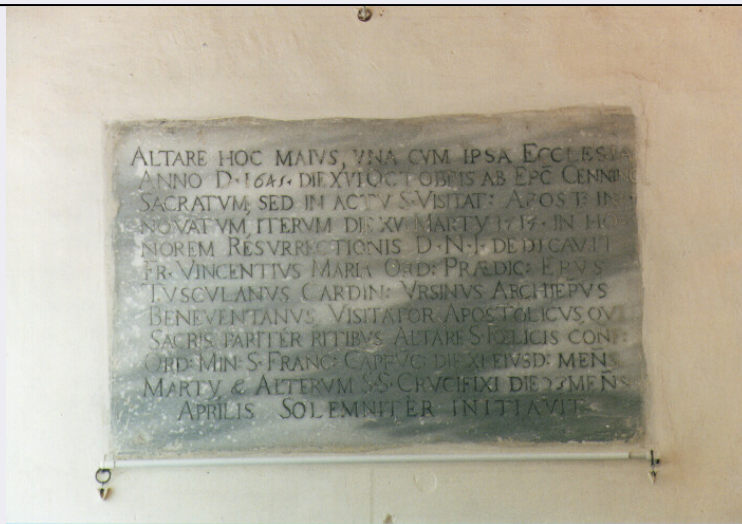 ALTARE HOC MAIVS, VNA CVM IPSA ECCLESIA
ANNO D. 1645. DIE XVI OCTOBRIS AB EPC̄ CENNINO
SACRATVM, SED IN ACTV S. VISITAT: APOST: IN
NOVATVM, ITERVM DIE XV MARTY IN HO
NOREM RESVRRECTIONIS D. N. J. DEDICAVIT
FR. VINCENTIVS MARIA ORD: PRÆDIC: EPVS
TVSCVLANVS CARDIN: VRSINVS ARCHIEPVS
BENEVENTANVS VISITATOR APOSTOLICVS, QVI
SACRIS PARITER RITIBVS ALTARE S. FŒLICIS CONF:
ORD: MIN: S. FRANC: CAPPVC: DIE XI EIVSD: MEN̄S
MARTY, & ALTERVM S.S. CRVCIFIXI DIE MEN̄S
APRILIS SOLEMNITER INITIAVIT